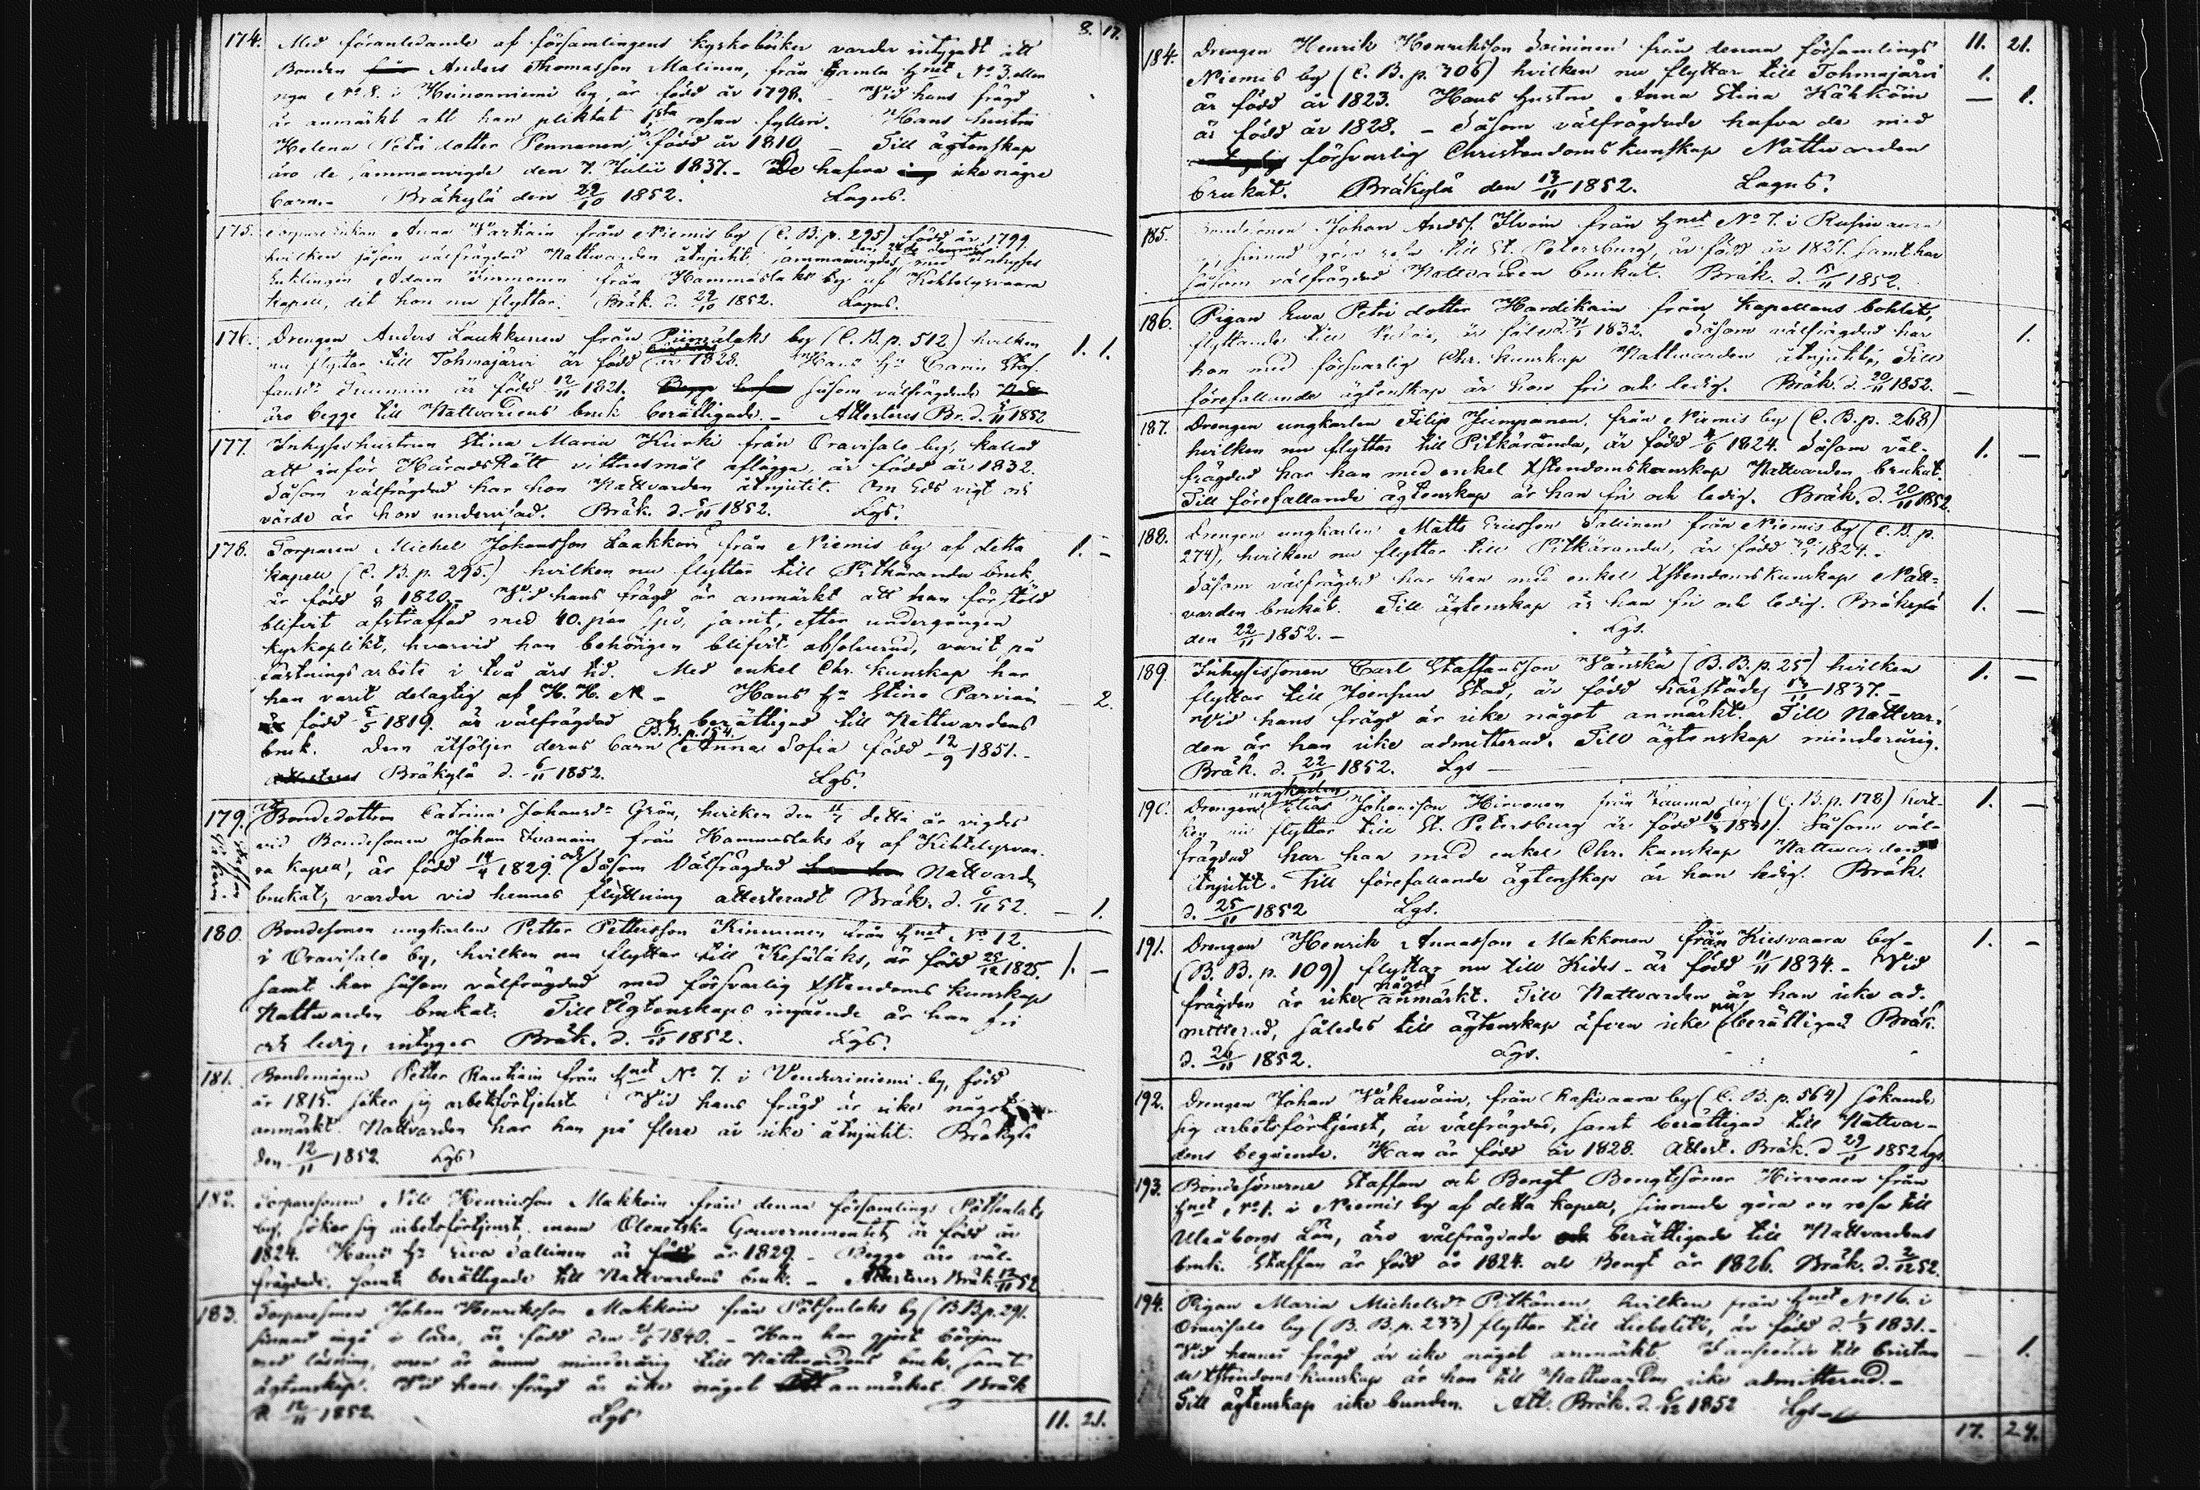 8. 17.
174. Med föranledande af församlingens kyrkoböcker varder intygadt att
Bonden Anders Thomasson Malinen, från gamla Hnet No 3. eller
nya No 8. i Heinoniemi by, är född år 1798. - Vid hans frägd
är anmärkt att han pliktat 1sta resan fylleri. Hans hustru
Helena Petri dotter Pennanen, är född år 1810 - Till ägtenskap
äro de sammanvigde den 7. Julii 1837. - De hafva icke några
barn. - Bräkylä den 29/10 1852. Lagus.
175. Anna Vartiain från Niemis by (C. B. p. 295) född år 1799
hvilken såsom välfrägdad Nattvarden åtnjutit, sammanvigdes med Inhyses
Enklingen Adam från Hammaslaks by af Kiihtelysvaara
Kapell, dit hon nu flyttar. Bräk. d. 29/10 1852. Lagus.
176. Drengen Anders Laukkanen från by (C. B. p. 512) hvilken
nu flyttar till Tohmajärvi är född år 1828. Hans Hu Carin Staf-
fansdr är född 12/11 1821. såsom välfrägdade
äro begge till Nattvardens bruk berättigade. - Attesteras Br. d. 5/11 1852
1. 1.
177. Inhyseshustrun Stina Maria Kurki från Oravisalo by, kallad
att inför Häradsrätt vittnesmål aflägga, är född år 1832.
Såsom välfrägdad har hon Nattvarden åtnjutit. Om Eds vigt och
värde är hon undervisad. Bräk. d. 5/11 1852. Lgs.
178. Torparen Michel Johansson Laakkoin från Niemis by af detta
Kapell (C. B. p. 295.) hvilken nu flyttar till Pitkäranda bruk,
är född 1820. - Vid hans frägd är anmärkt att han för stöld
blifvit afstraffad med 40. par spö, samt, efter undergången
kyrkoplikt, hvarvid han behörigen blifvit absolverad, varit på
fästnings arbete i två års tid. Med enkel Chr. kunskap har
han varit delagtig af H. H. N. - Hans Hu Stina Parviain
född 5/5 1819. är välfrägdad och berättigad till Nattvardens
bruk. Dem åtföljer deras barn (B. B. p. 154.) Anna Sofia född 12/9 1851. -
Bräkylä d. 6/11 1852. Lgs.
1. -
- 2.
179. Bondedottren Catrina Johansdr Grön, hvilken den detta år vigdes
vid Bondesonen Johan Ivanain från Hammaslaks by af Kihtelysvaa-
ra Kapell, är född 14/4 1829. och såsom välfrägdad Nattvarden
brukat, varder vid hennes flyttning attesteradt Bräk. d. 6/11 52.
- 1.
180. Bondesonen ungkarlen Petter Pettersson Kinnunen från Hnet No 12.
i Oravisalo by, hvilken nu flyttar till Kesälaks, är född 25/12 1825.
samt har såsom välfrägdad med försvarlig Xstendoms kunskap
Nattvarden brukat. Till Ägtenskaps ingående är han fri
och ledig, intygar Bräk. d. 6/11 1852. Lgs.
1. -
181. Bondemågen Petter Rautiain från Hnet No 7. i Vendsriniemi by, född
år 1815. söker sig arbetsförtjenst. Vid hans frägd är icke något
anmärkt. Nattvarden har han på flere år icke åtnjutit. Bräkylä
den 12/11 1852. Lgs
182. Torparesonen Nils Henricsson Makkoin från denna församlings Pöttenlaks
by, söker sig arbetsförtjenst, inom Olonetska Gouvernementet, är född år
1824. Hans Hu Ewa Sallinen är född år 1829. - Begge äro väl-
frägdade, samt berättigade till Nattvardens bruk. - Attesteras Bräk. 12/11 52
183. Torparesonen Johan Henriksson Makkoin från Pöttenlaks by (B. B. p. 291.
sinnad ingå i lära, är född den 1840. - Han har gjort början
med läsning, men är ännu minderårig till Nattvardens bruk, samt
ägtenskap. Vid hans frägd är icke något anmärket. Bräk
d. 12/11 1852. Lgs
11. 21.
11. 21.
184. Drengen Henrik Henriksson Soininen från denna församlings
Niemis by (C. B. p. 306) hvilken nu flyttar till Tohmajärvi
är född år 1823. Hans hustru Anna Stina Kähköin
är född år 1828. - Såsom välfrägdade hafva de med
försvarlig Christendoms kunskap Nattvarden
brukat. Bräkylä den 13/11 1852. Lagus.
1.
— 1.
185. Johan Andss. Ilvoin från Hnet No 7. i Rasivaara
sinnad göra resa till St. Petersburg, är född år 1821. samt har
såsom välfrägdad Nattvarden brukat. Bräk. d. 15/11 1852.
186. Pigan Ewa Petri dotter Hardikain från Kapellans bohlet,
flyttande till är född 1832. Såsom välfrägdad har
hon med försvarlig Chr. kunskap Nattvarden åtnjutit; Till
förefallande ägtenskap är hon fri och ledig. Bräk. d. 20/11 1852.
— 1.
187. Drengen ungkarlen Filip Jumpanen, från Niemis by (C. B. p. 268)
hvilken nu flyttar till Pitkäranda, är född 4/6 1824. Såsom väl-
frägdad har han med enkel Xstendomskunskap Nattvarden brukat.
Till förefallande ägtenskap är han fri och ledig. Bräk. d. 20/11 1852.
1. —
188. Drengen ungkarlen Matts Ericsson Sallinen från Niemis by (C. B. p.
274), hvilken nu flyttar till Pitkäranda, är född 1824. -
Såsom välfrägdad har han med enkel Xstendoms kunskap Natt-
varden brukat. Till ägtenskap är han fri och ledig. Bräkylä
den 22/11 1852. - Lgs.
1. —
189. Inhysessonen Carl Staffansson Vänskä (B. B. p. 25) hvilken
flyttar till Joensuu Stad, är född härstädes 13/11 1837. -
Vid hans frägd är icke något anmärkt. Till Nattvar-
den är han icke admitterad. Till ägtenskap minderårig.
Bräk. d. 22/11 1852. Lgs
1. —
190. Drengen ungkarlen Elias Johansson Hirvonen från Rauma by (C. B. p. 178) hvil-
ken nu flyttar till St. Petersburg är född 16/3 1831. Såsom väl-
frägdad har han med enkel Chr. kunskap Nattvarden
åtnjutit. Till förefallande ägtenskap är han ledig. Bräk.
d. 25/11 1852 Lgs.
1. —
191. Drengen Henrik Annasson Makkonen från Kiesvaara by
(B. B. p. 109) flyttar nu till Kides - är född 11/11 1834. - Vid
frägden är icke något anmärkt. Till Nattvarden är han icke ad-
mitterad, således till ägtenskap äfven icke nu berättigad Bräk.
d. 26/11 1852. Lgs.
1. -
192. Drengen Johan Väkeväin, från Rasivaara by (C. B. p. 564) sökande
sig arbetsförtjenst, är välfrägdad, samt berättigad till Nattvar-
dens begående. Han är född år 1828. Attest. Bräk. d 29/11 1852 Lgs
193. Bondesönerne Staffan och Bengt Bengtssöner Hirvonen från
Hnet No 1. i Niemis by af detta Kapell, sinnade göra en resa till
Uleåborgs Län, äro välfrägdade berättigade till Nattvardens
bruk. Staffan är född år 1824. och Bengt år 1826. Bräk. d. 2/12 52.
194. Pigan Maria Michelsdr Pitkänen, hvilken från Hnet No 16. i
Oravisalo by (B. B. p. 233) flyttar till Libelits, är född d. 1/3 1831. -
Vid hennes frägd är icke något anmärkt. till bristan-
de Xstendoms kunskap är hon till Nattvarden icke admitterad. -
Till ägtenskap icke bunden. Att. Bräk. d. 6/12 1852 Lgs
— 1.
17. 24.